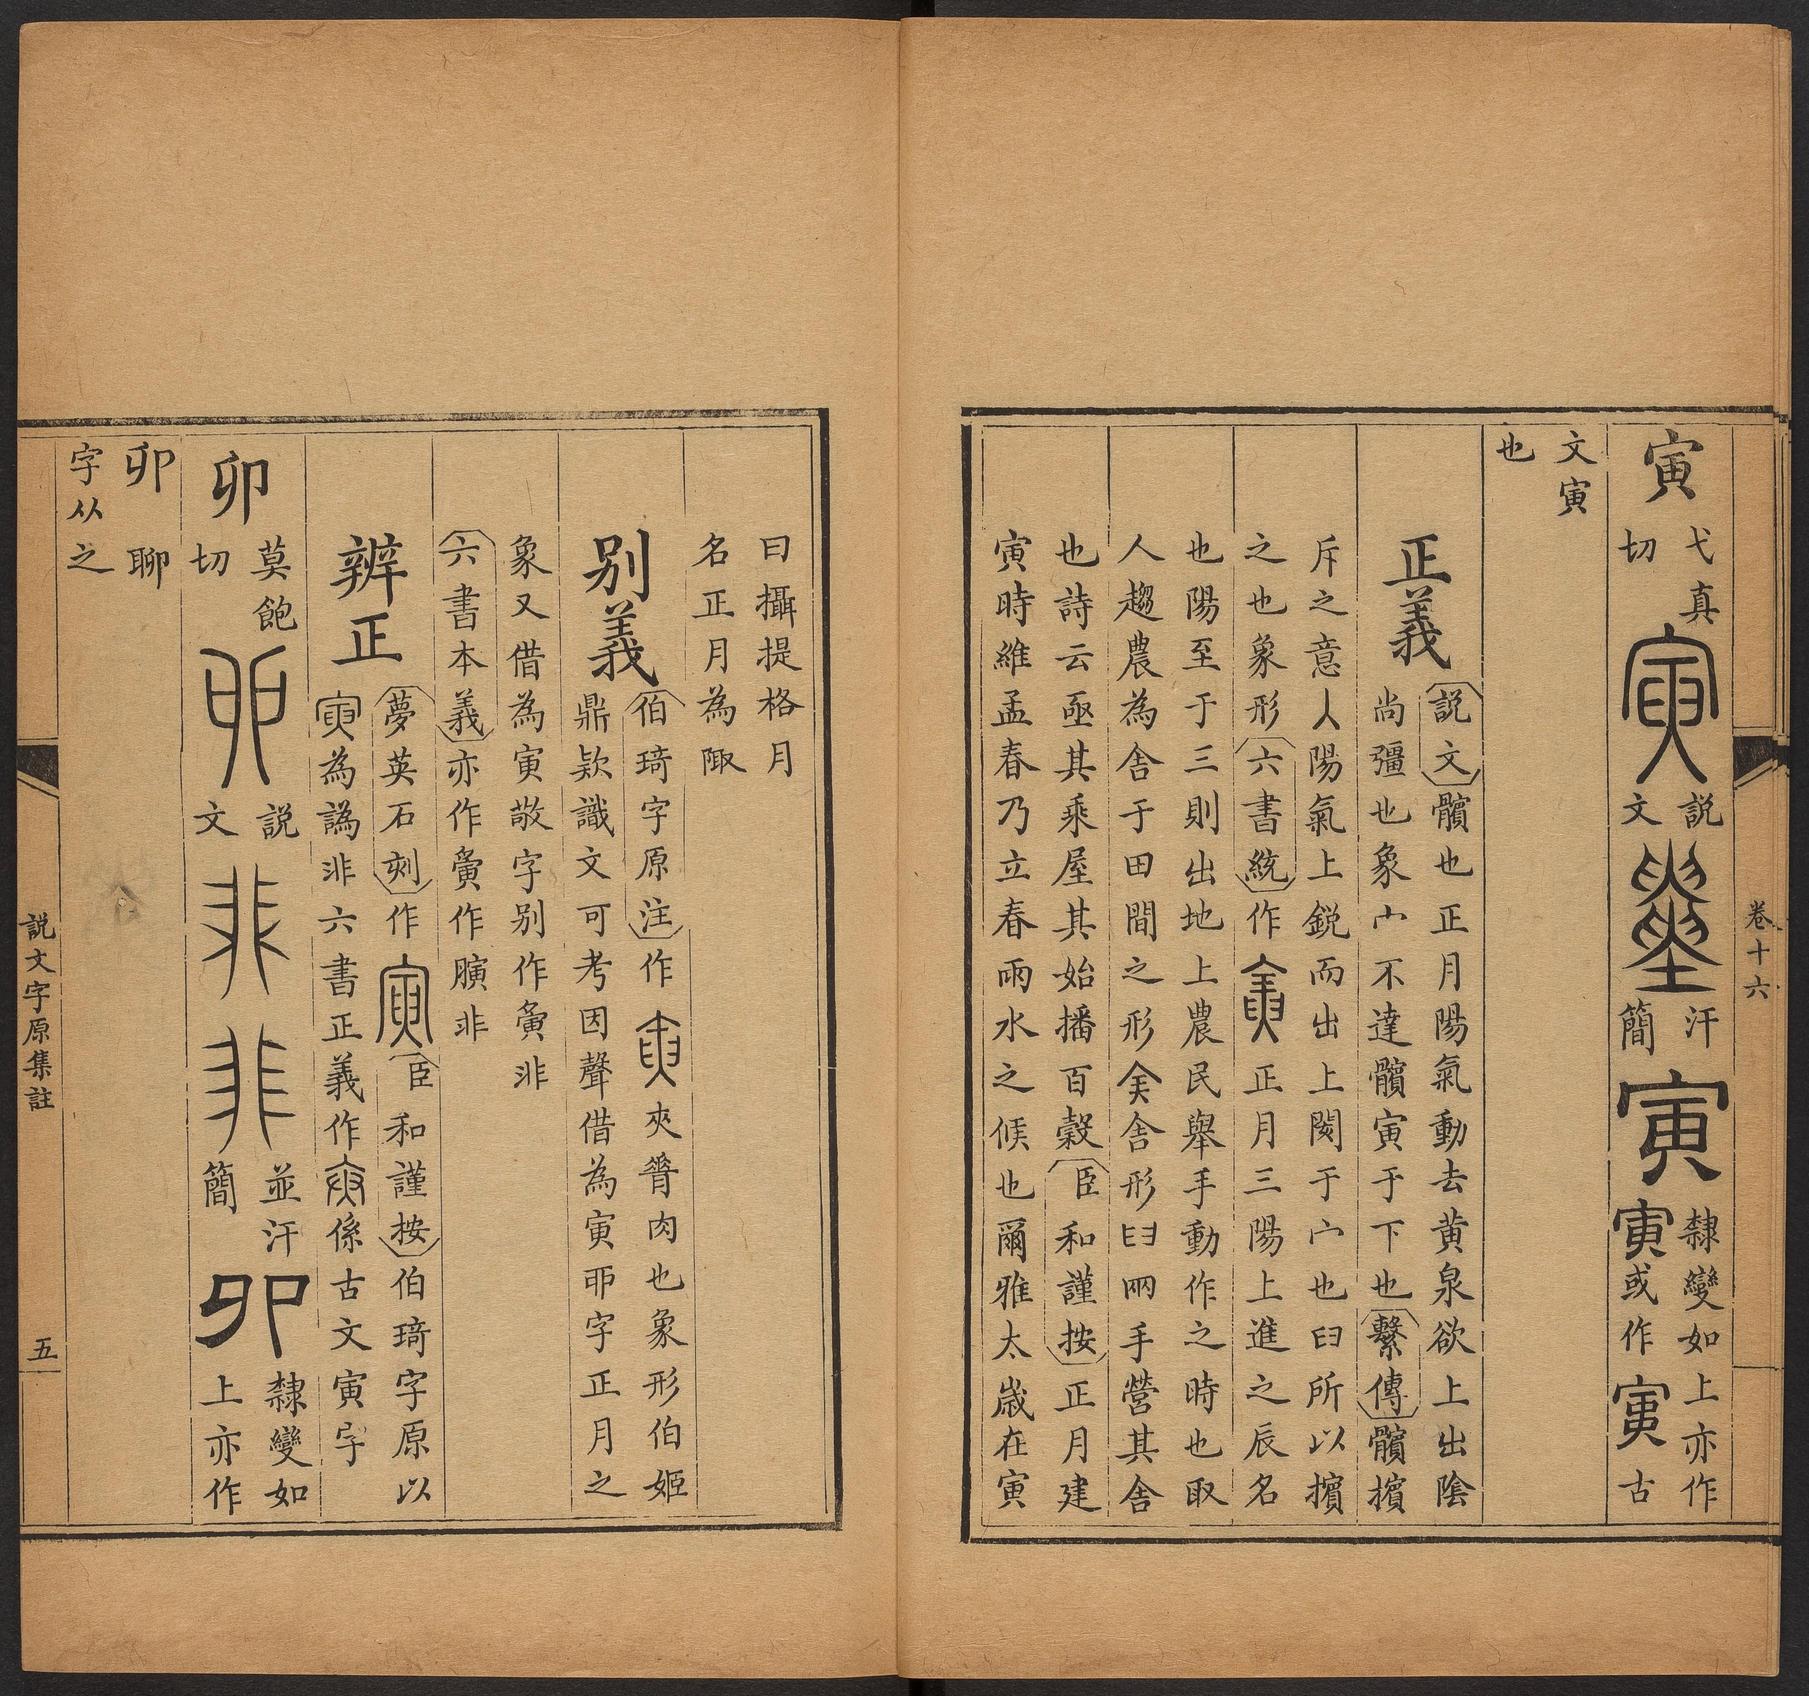 卷十六
寅
弋真
切
說
文
汗
簡
寅
隸變如上亦作
寅或作寅古
文寅
也
正義
說文髕也正月陽氣動去黃泉欲上出陰
尚彊也象宀不達髕寅于下也繫傳髕擯
斥之意人陽氣上銳而出上閡于宀也臼所以擯
之也象形六書統作正月三陽上進之辰名
也陽至于三則出地上農民舉手動作之時也取
人趨農為舍于田間之形舍形𦥑兩手營其舍
也詩云亟其乘屋其始播百穀臣和謹按正月建
寅時維孟春乃立春雨水之候也爾雅太歲在寅
曰攝提格月
名正月為陬
別義
伯琦字原注作夾脊肉也象形伯姬
鼎款識文可考因聲借為寅卯字正月之
象又借為寅敬字別作夤非
六書本義亦作夤作䐩非
辨正
夢英石刻作臣和謹按伯琦字原以
為譌非六書正義作係古文寅字
卯
莫飽
切
說
文
並汗
簡
卯
隸變如
上亦作
卯聊
字从之
說文字原集註
五